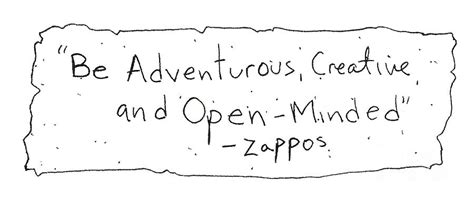 "Be Adventurous, Creative
and Open-Minded"
-Zappos